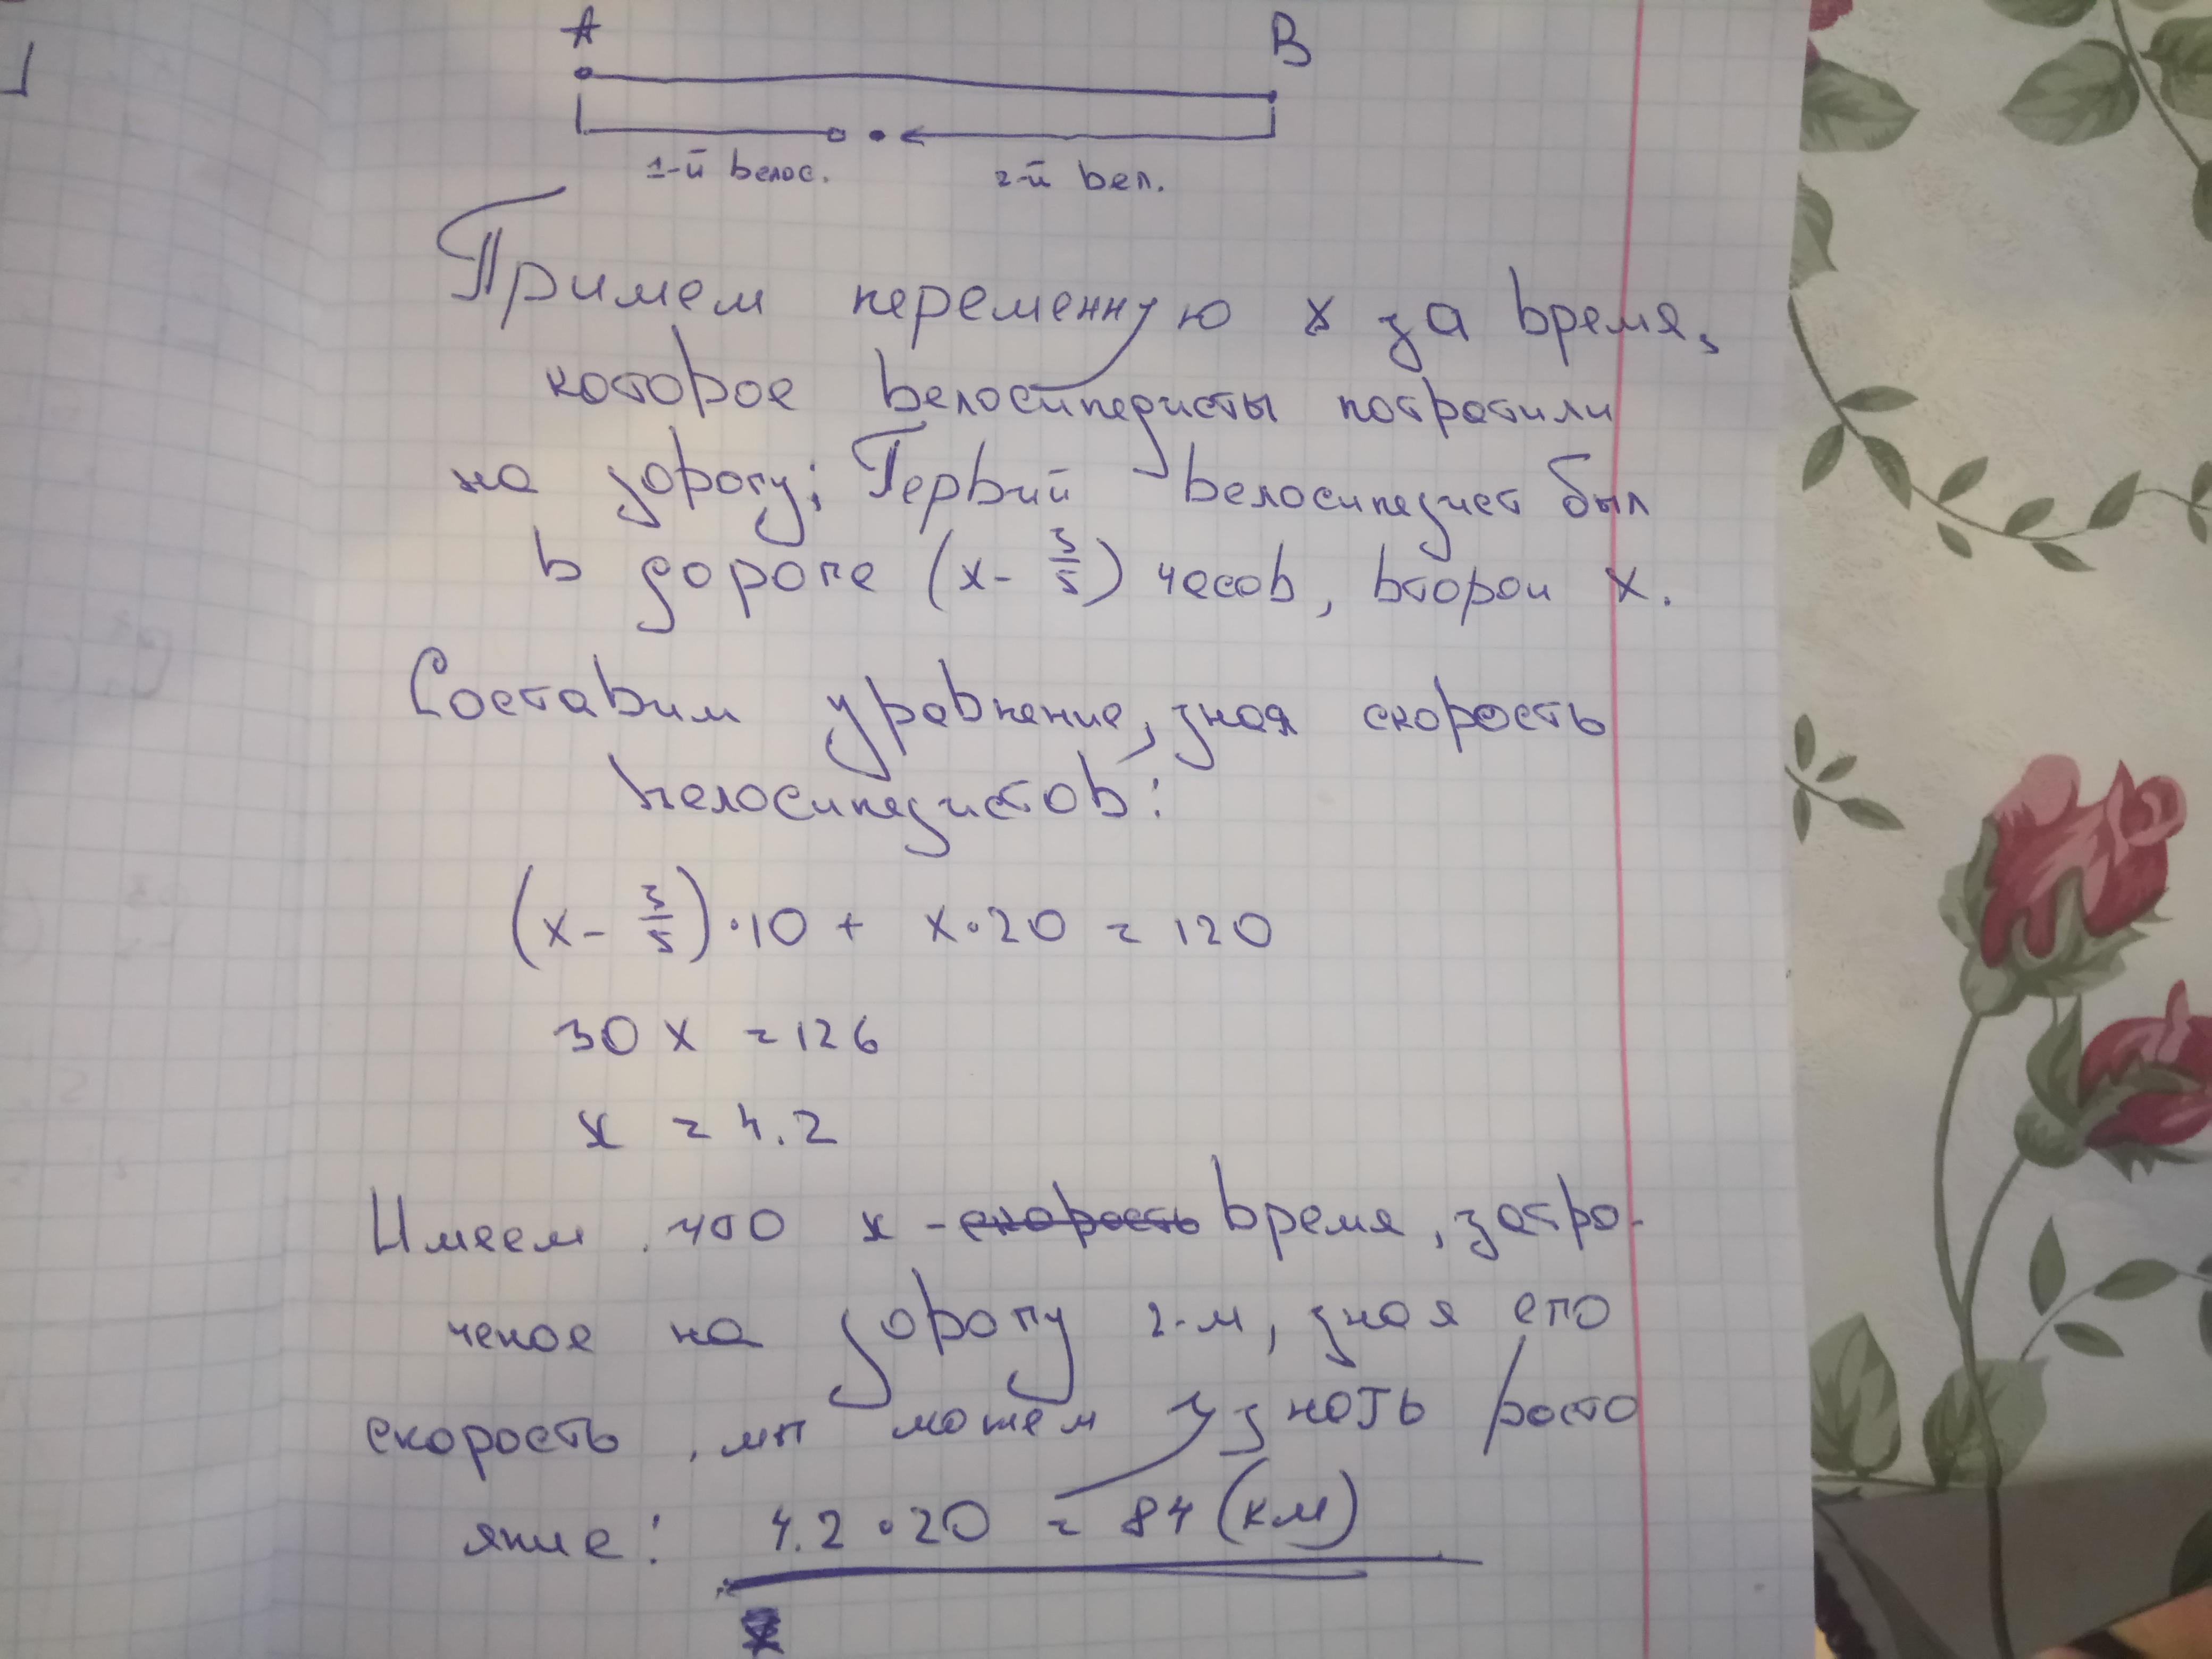 A B
1-й велос. 2-й вел.
Примем переменную x за время,
которое велосипедисты потратили
на дорогу; Первий велосипедист был
в дороге (x - 3/5) часов, второй x.
Составим уравнение, зная скорость
велосипедистов:
(x - 3/5) · 10 + x · 20 = 120
30 x = 126
x = 4.2
Имеем, что x - скорость время, затра-
ченое на дорогу 2-м, зная его
скорость, мы можем узнать расто
яние: 4.2 · 20 = 84 (км)